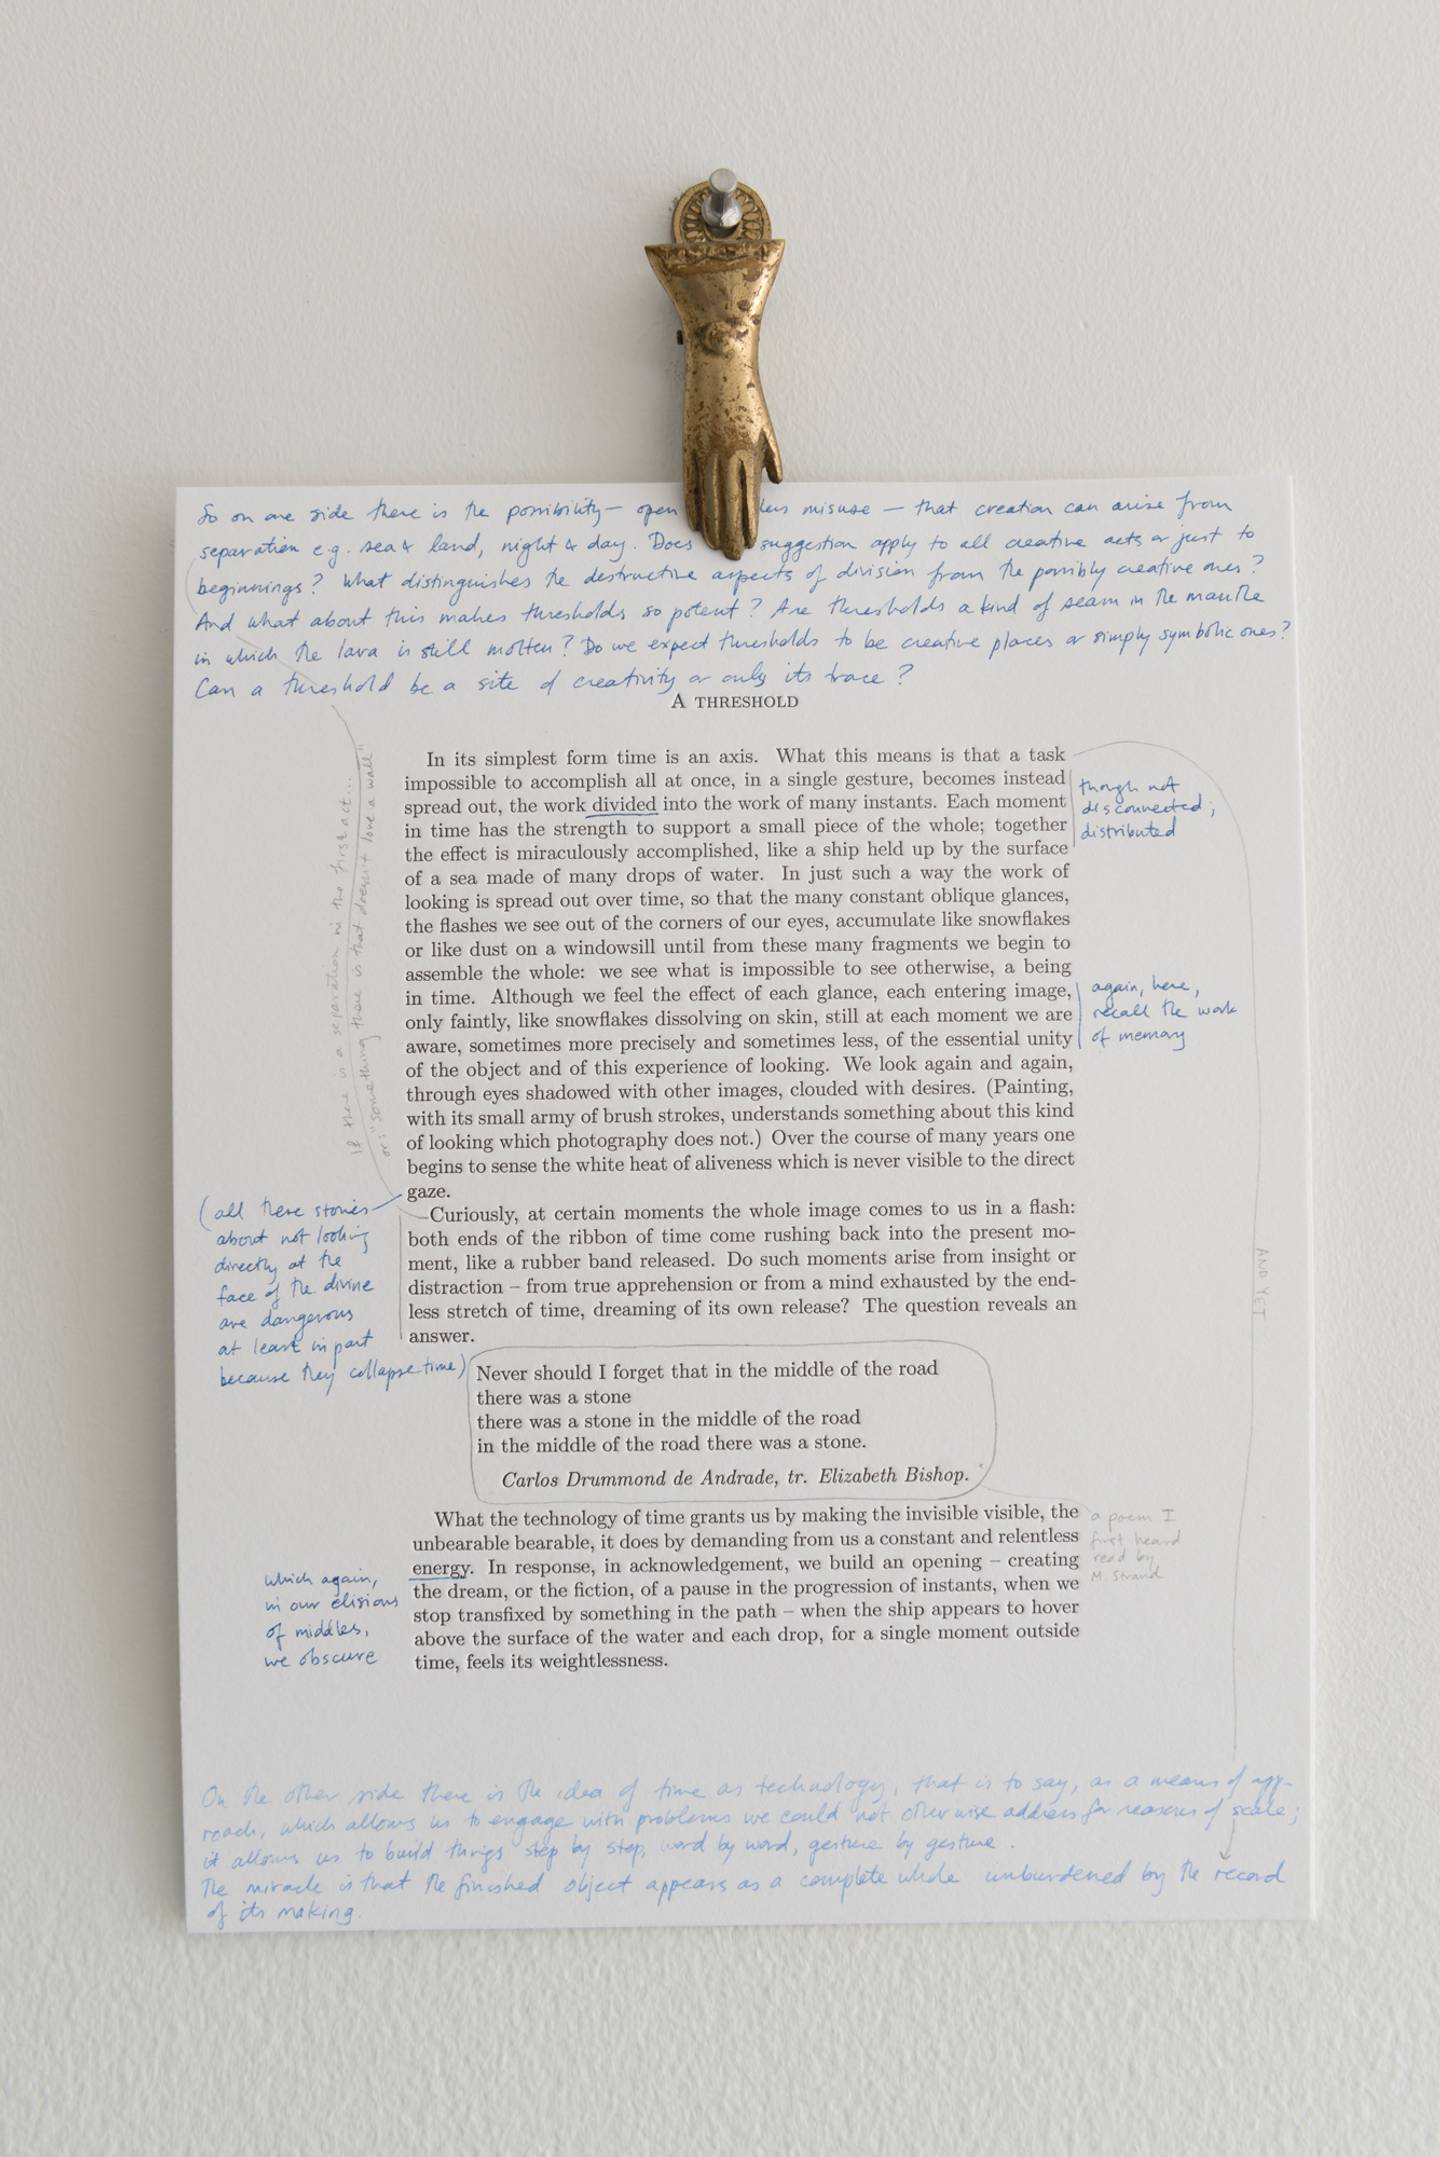 So on one side there is the possibility — open misuse — that creation can arise from
separation e.g. sea & land, night & day. Does suggestion apply to all creative acts or just to
beginnings? What distinguishes the destructive aspects of division from the possibly creative ones?
And what about this makes thresholds so potent? Are thresholds a kind of seam in the mantle
in which the lava is still molten? Do we expect thresholds to be creative places or simply symbolic ones?
Can a threshold be a site of creativity or only its trace?
A THRESHOLD
In its simplest form time is an axis. What this means is that a task
impossible to accomplish all at once, in a single gesture, becomes instead
spread out, the work divided into the work of many instants. Each moment
in time has the strength to support a small piece of the whole; together
the effect is miraculously accomplished, like a ship held up by the surface
of a sea made of many drops of water. In just such a way the work of
looking is spread out over time, so that the many constant oblique glances,
the flashes we see out of the corners of our eyes, accumulate like snowflakes
or like dust on a windowsill until from these many fragments we begin to
assemble the whole: we see what is impossible to see otherwise, a being
in time. Although we feel the effect of each glance, each entering image,
only faintly, like snowflakes dissolving on skin, still at each moment we are
aware, sometimes more precisely and sometimes less, of the essential unity
of the object and of this experience of looking. We look again and again,
through eyes shadowed with other images, clouded with desires. (Painting,
with its small army of brush strokes, understands something about this kind
of looking which photography does not.) Over the course of many years one
begins to sense the white heat of aliveness which is never visible to the direct
gaze.
though not
disconnected;
distributed
again, here,
recall the work
of memory
If there is a separation in the first act...
or: "something there is that doesn't love a wall"
(all these stories
about not looking
directly at the
face of the divine
are dangerous
at least in part
because they collapse time)
Curiously, at certain moments the whole image comes to us in a flash:
both ends of the ribbon of time come rushing back into the present mo-
ment, like a rubber band released. Do such moments arise from insight or
distraction – from true apprehension or from a mind exhausted by the end-
less stretch of time, dreaming of its own release? The question reveals an
answer.
AND YET
Never should I forget that in the middle of the road
there was a stone
there was a stone in the middle of the road
in the middle of the road there was a stone.
Carlos Drummond de Andrade, tr. Elizabeth Bishop.
a poem I
first heard
read by
M Strand
What the technology of time grants us by making the invisible visible, the
unbearable bearable, it does by demanding from us a constant and relentless
energy. In response, in acknowledgement, we build an opening – creating
the dream, or the fiction, of a pause in the progression of instants, when we
stop transfixed by something in the path – when the ship appears to hover
above the surface of the water and each drop, for a single moment outside
time, feels its weightlessness.
which again,
in our elisions
of middles,
we obscure
On the other side there is the idea of time as technology, that is to say, as a means of app-
roach, which allows us to engage with problems we could not otherwise address for reasons of scale;
it allows us to build things step by step, word by word, gesture by gesture.
The miracle is that the finished object appears as a complete whole unburdened by the record
of its making.